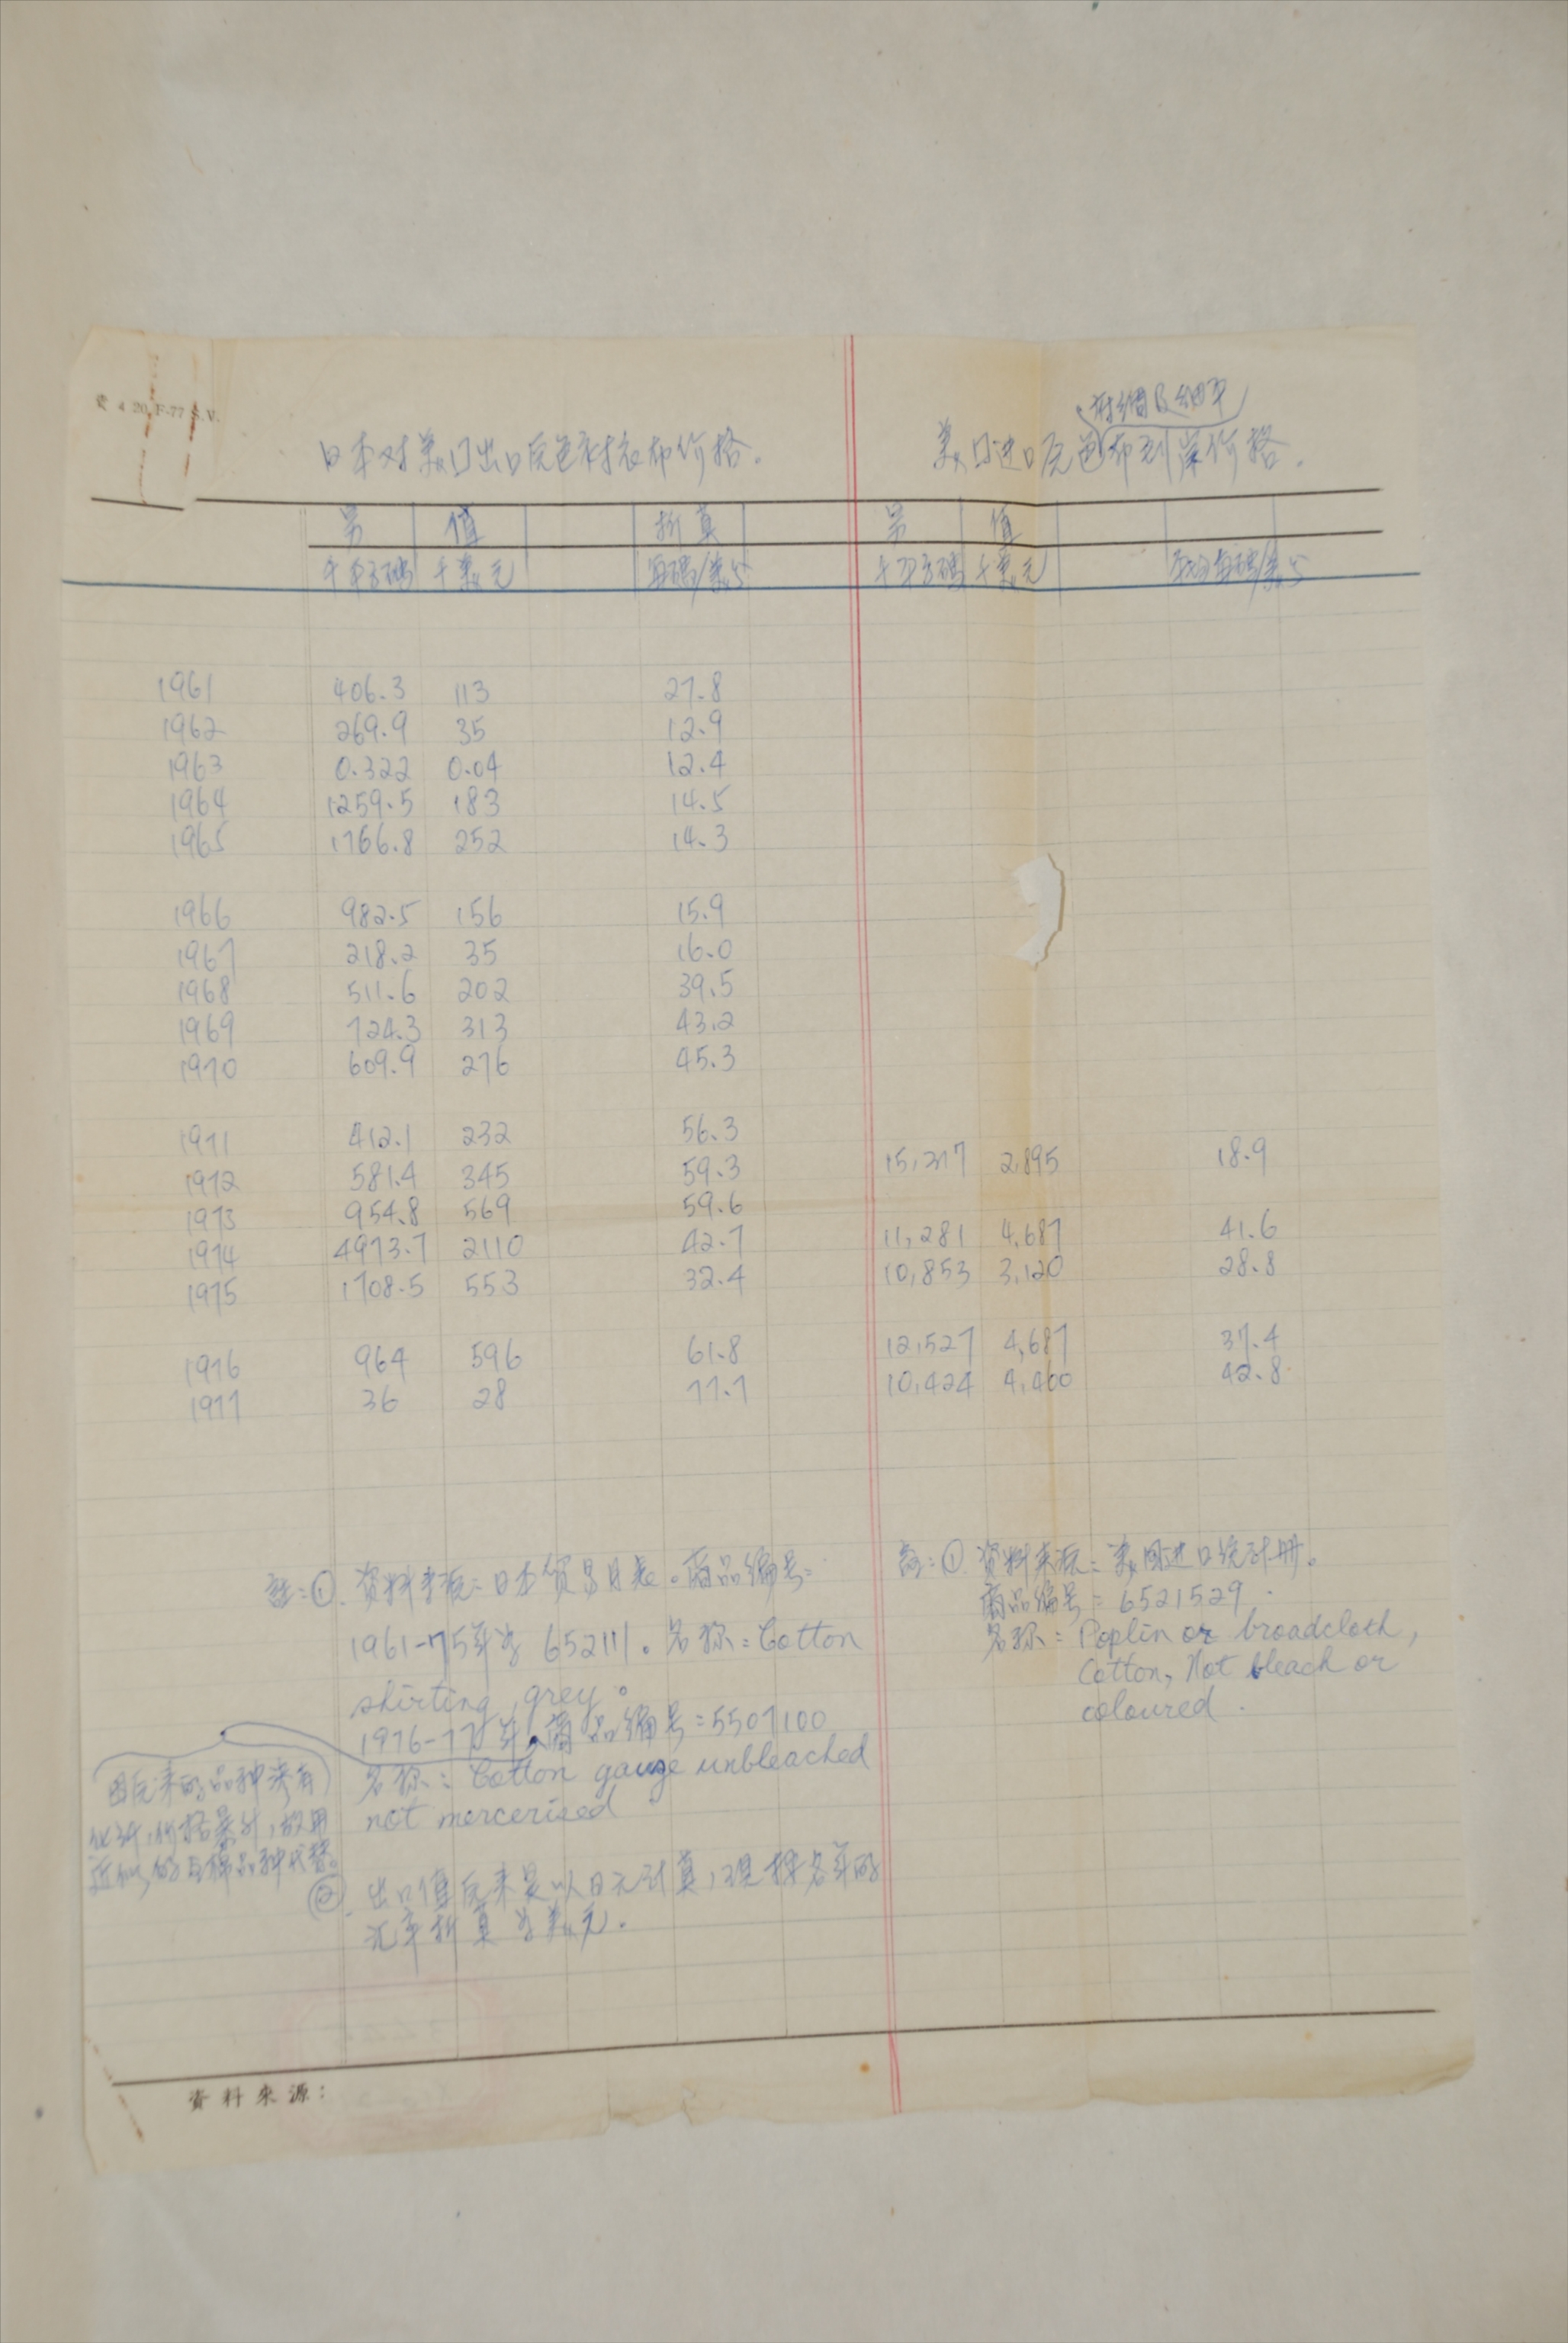 4 20 F-77 S.V.
府绸及细平
日本对美囗出口原色衬衣布价格. 美囗进口原色布到岸价格.
另 值 折算 另 值
千平方碼 千美元 每碼/美分 千平方碼 千美元 平均每碼/美分
1961 406.3 113 27.8
1962 269.9 35 12.9
1963 0.322 0.04 12.4
1964 1259.5 183 14.5
1965 1766.8 252 14.3
1966 982.5 156 15.9
1967 218.2 35 16.0
1968 511.6 202 39.5
1969 724.3 313 43.2
1970 609.9 276 45.3
1971 412.1 232 56.3
1972 581.4 345 59.3 15,317 2,895 18.9
1973 954.8 569 59.6
1974 4973.7 2110 42.7 11,281 4,687 41.6
1975 1708.5 553 32.4 10,853 3,120 28.8
1976 964 596 61.8 12,527 4,687 37.4
1977 36 28 77.7 10,424 4,460 42.8
註:①. 资料来源:日本贸易月表。商品编号:
1961-75年为 652111。名称:Cotton
shirting, grey。
1976-77年,商品编号:5507100
名称:Cotton gauze unbleached
not mercerised
因原来的品种没有
价格 ,故用
近似的 品种代替。
②. 出口值原来是以日元计算,现按各年的
汇率折算为美元.
註:① 资料来源:美国进口统计册。
商品编号:6521529.
名称:Poplin or broadcloth,
Cotton, Not bleach or
coloured.
資料來源: